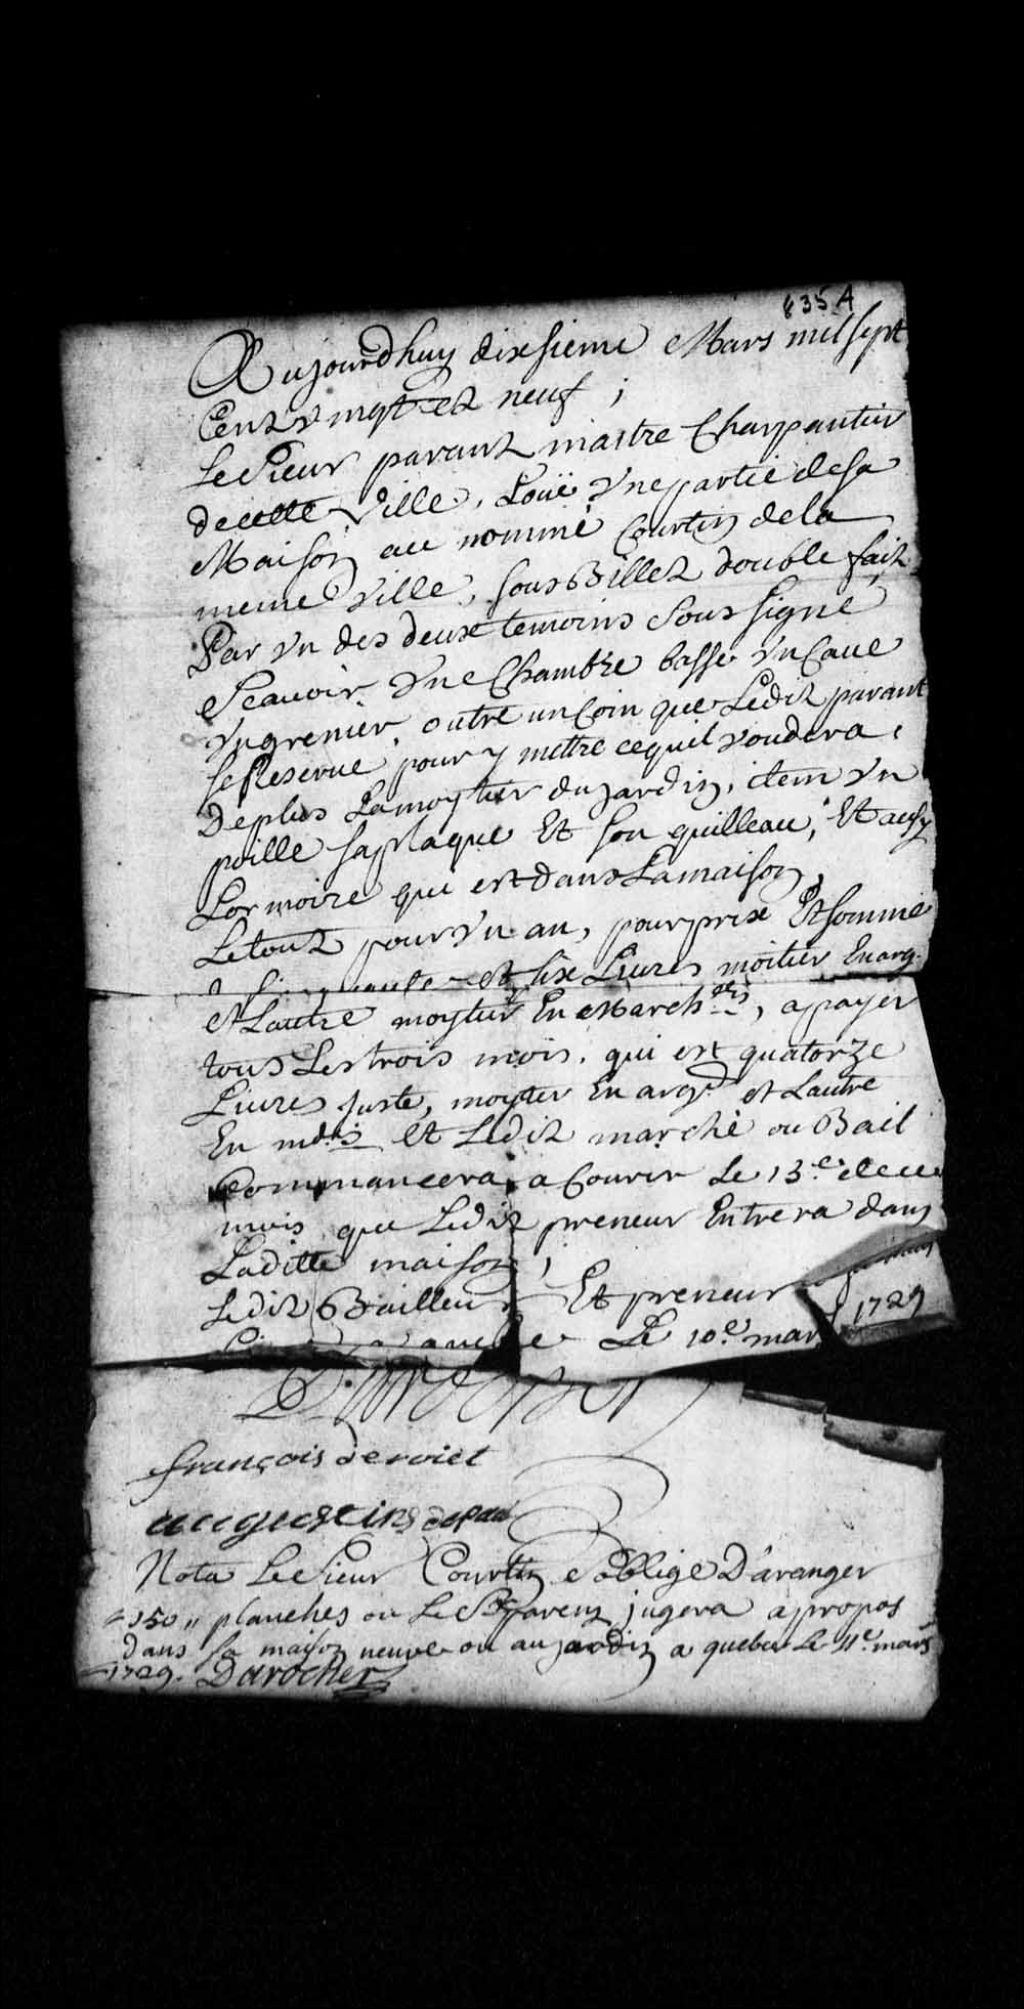 835A
Aujourdhuy dixsieme Mars mil sept
Cent vingt et neuf ;
Le Sieur parant maitre Charpantier
de cette Ville, Loüe Vne partie de sa
Maison au nommé Courtin de la
meme Ville, sous Billet double fait
Par Vn des deux temoins Sous signé
Scauoir Vne Chambre basse Vn Caue
Vn grenier, outre un Coin que Ledit parant
se Reserue pour y mettre ce quil voudera,
De plus La moytier du jardin, item Vn
poille sa plaque Et son quilleau, Et ausy
Lormoire qui est dans La maison,
Le tout pour Vn an, pour prix Et somme
et six Liures moitier En arg.
et Lautre moytier En March.des, a payer
tous Les trois mois, qui est quatorze
Liures juste, moytier En arg.t et Lautre
En md.ses et Ledit marché ou Bail
Commancera a Courir Le 13.e de ce
mois que Ledit preneur Entrera dans
Laditte maison ;
Ledit Bailleur Et preneur
Le 10.e mars 1729
Darocher
françois deroiet
augustin
Nota Le Sieur Courtin soblige D'aranger
150 " planches ou Le Sr. parent jugera apropos
dans sa maison neuve ou au jardin a quebec Le 11.e mars
1729. Darocher